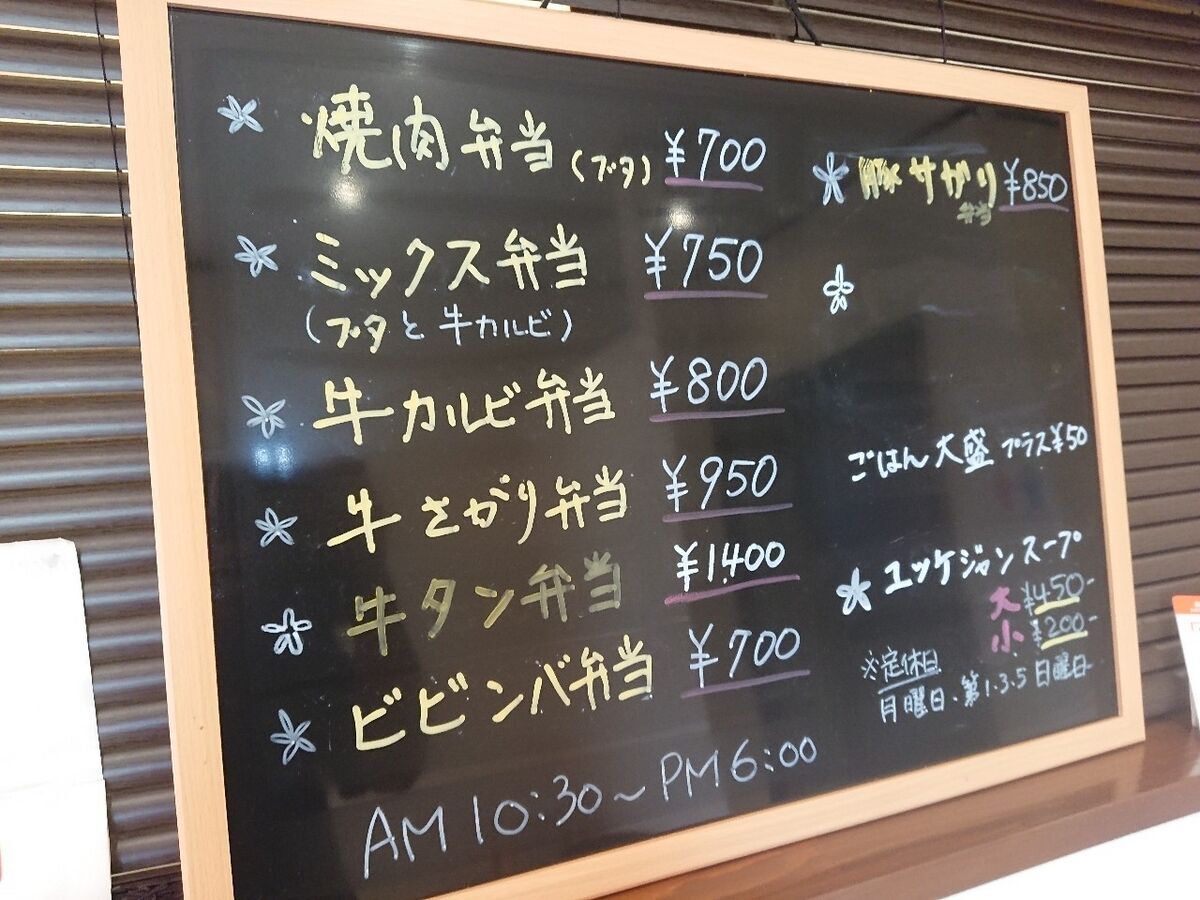 焼肉弁当(ブタ) ¥700
ミックス弁当 ¥750
(ブタと牛カルビ)
牛カルビ弁当 ¥800
牛さがり弁当 ¥950
牛タン弁当 ¥1,400
ビビンバ弁当 ¥700
AM10:30~PM6:00
豚サガリ弁当 ¥850
ごはん大盛 プラス¥50
ユッケジャンスープ
大 ¥450-
小 ¥200-
※定休日
月曜日、第1.3.5日曜日